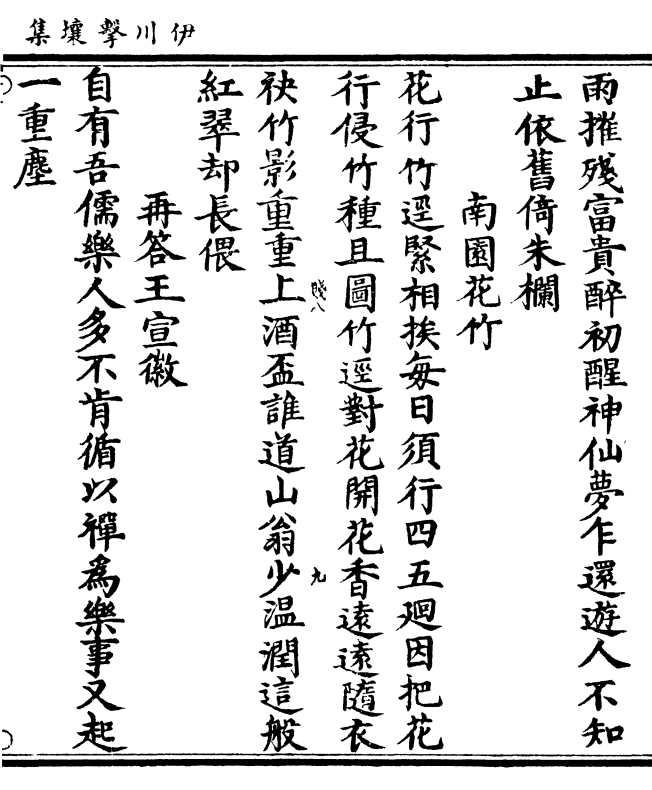 伊川擊壤集
雨摧殘富貴醉初醒神仙夢乍還遊人不知
止依舊倚朱欄
南園花竹
花行竹逕緊相挨每日須行四五廻因把花
行侵竹種且圖竹逕對花開花香遠遠隨衣
袂竹影重重上酒盃誰道山翁少温潤這般
紅翠却長偎
再答王宣徽
自有吾儒樂人多不肯循以禪爲樂事又起
一重塵